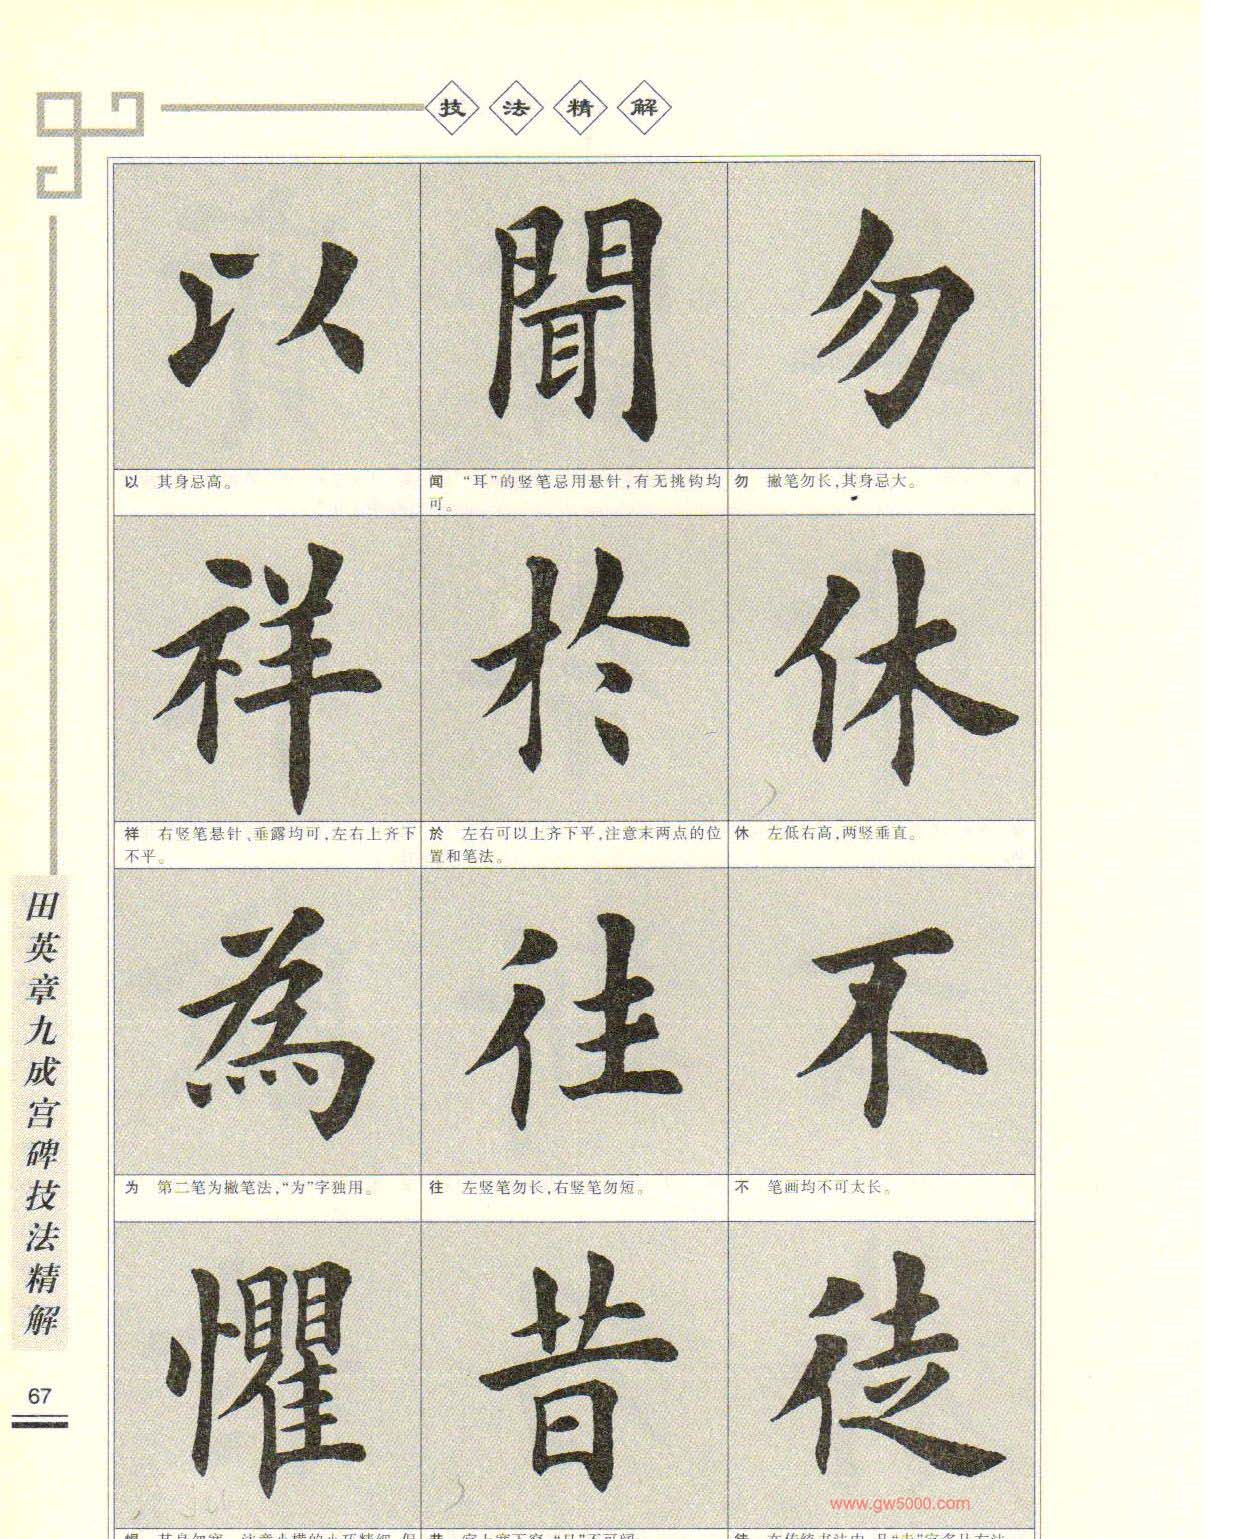 技法精解
以 聞 勿
以 其身忌高。
闻 “耳”的竖笔忌用悬针,有无挑钩均
可。
勿 撇笔勿长,其身忌大。
祥 於 休
祥 右竖笔悬针、垂露均可,左右上齐下
不平。
於 左右可以上齐下平,注意末两点的位
置和笔法。
休 左低右高,两竖垂直。
為 往 不
为 第二笔为撇笔法,“为”字独用。
往 左竖笔勿长,右竖笔勿短。
不 笔画均不可太长。
懼 昔 徒
www.gw5000.com
田英章九成宫碑技法精解
67